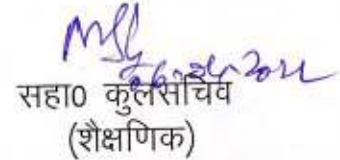 सहा0 कुलसचिव
(शैक्षणिक)